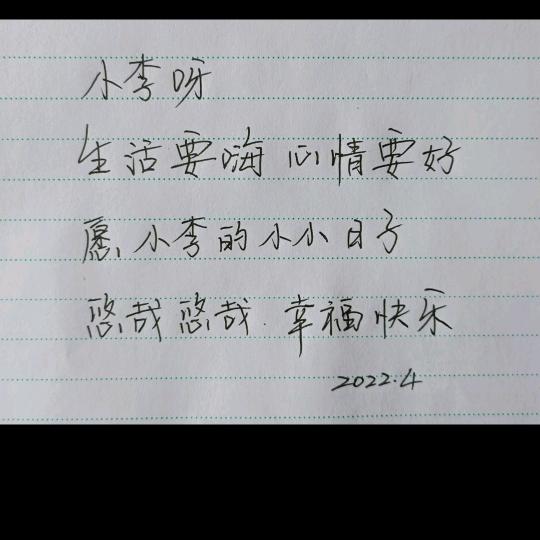 小李呀
生活要嗨 心情要好
愿小李的小小日子
悠哉悠哉.幸福快乐
2022.4